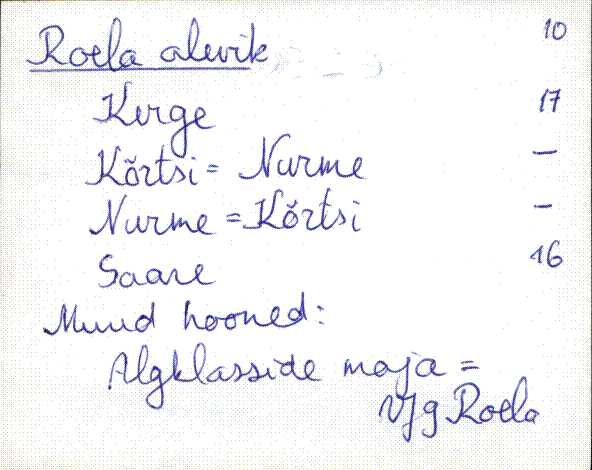 Roela alevik 10
Kerge 17
Kõrtsi = Nurme –
Nurme = Kõrtsi –
Saare 16
Muud hooned:
Algklasside maja =
Vjg Roela